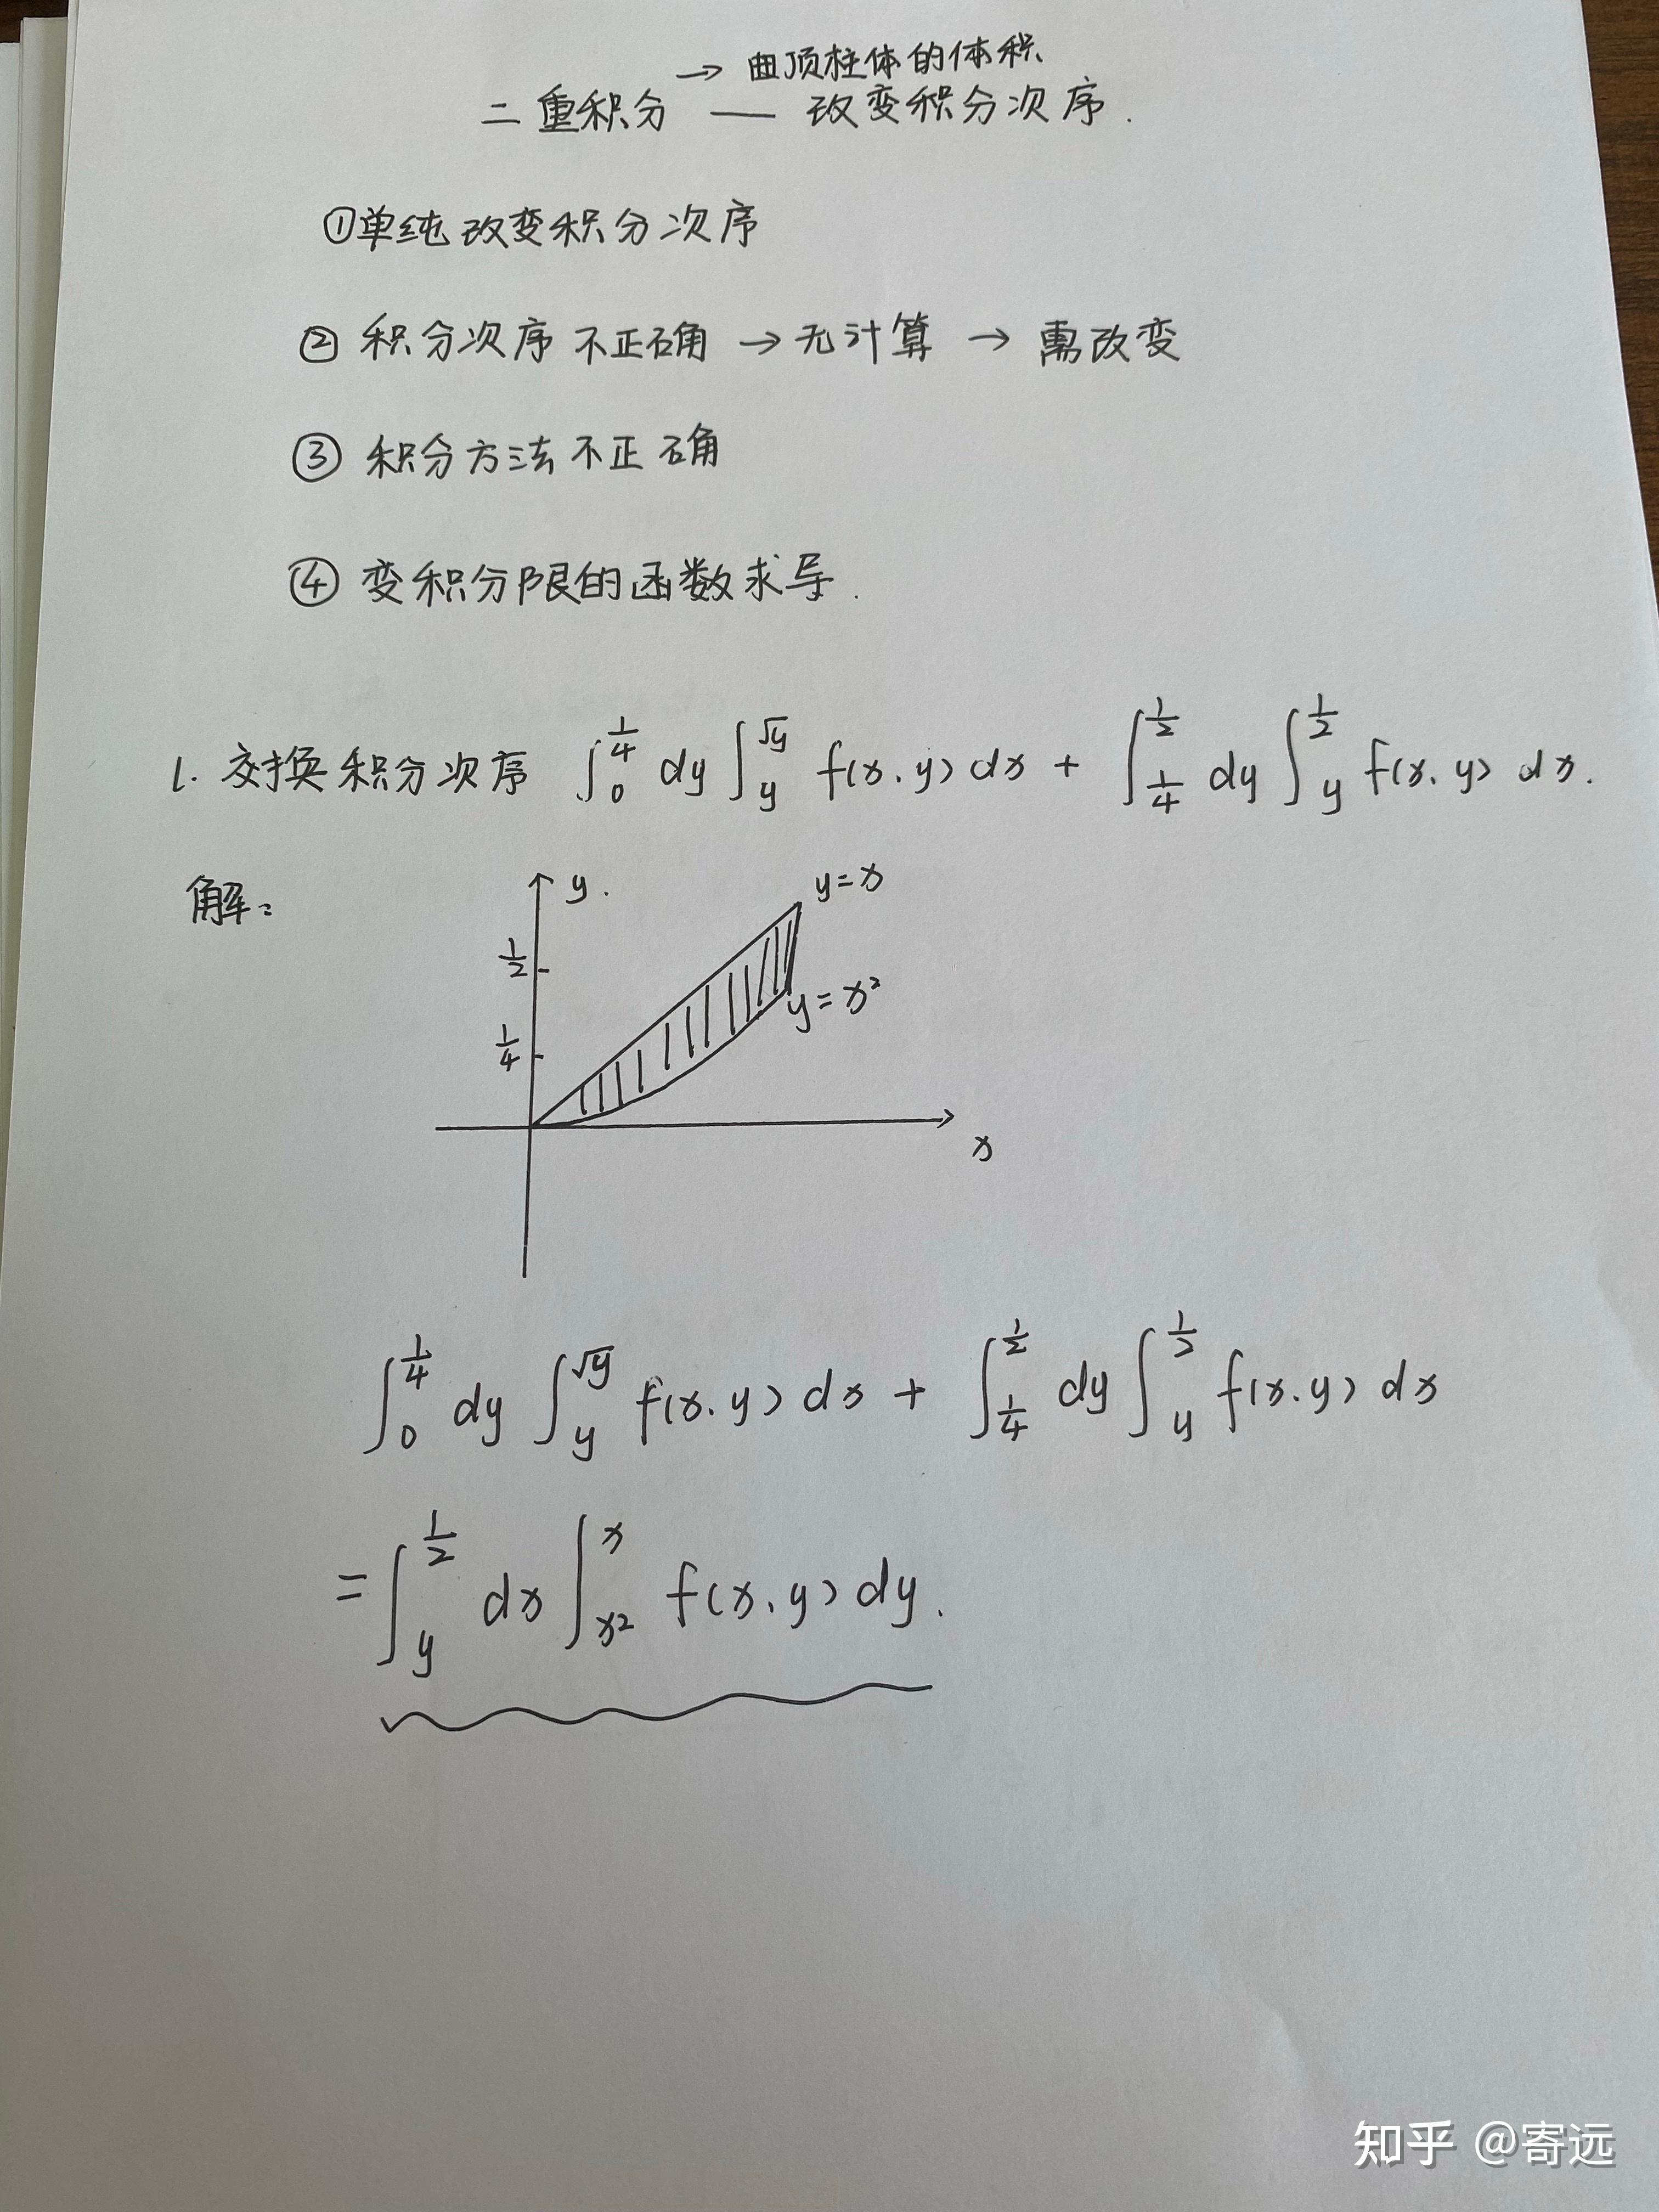 → 曲顶柱体的体积
二重积分 — 改变积分次序.
①单纯改变积分次序
② 积分次序不正确 → 无计算 → 需改变
③ 积分方法不正确
④ 变积分限的函数求导.
1. 交换积分次序 ∫_0^{1/4} dy ∫_y^{√y} f(x,y) dx + ∫_{1/4}^{1/2} dy ∫_y^{1/2} f(x,y) dx.
解:
y.
y=x
1/2
y=x²
1/4
x
∫_0^{1/4} dy ∫_y^{√y} f(x,y) dx + ∫_{1/4}^{1/2} dy ∫_y^{1/2} f(x,y) dx
= ∫_y^{1/2} dx ∫_{x²}^{x} f(x,y) dy.
知乎 @寄远